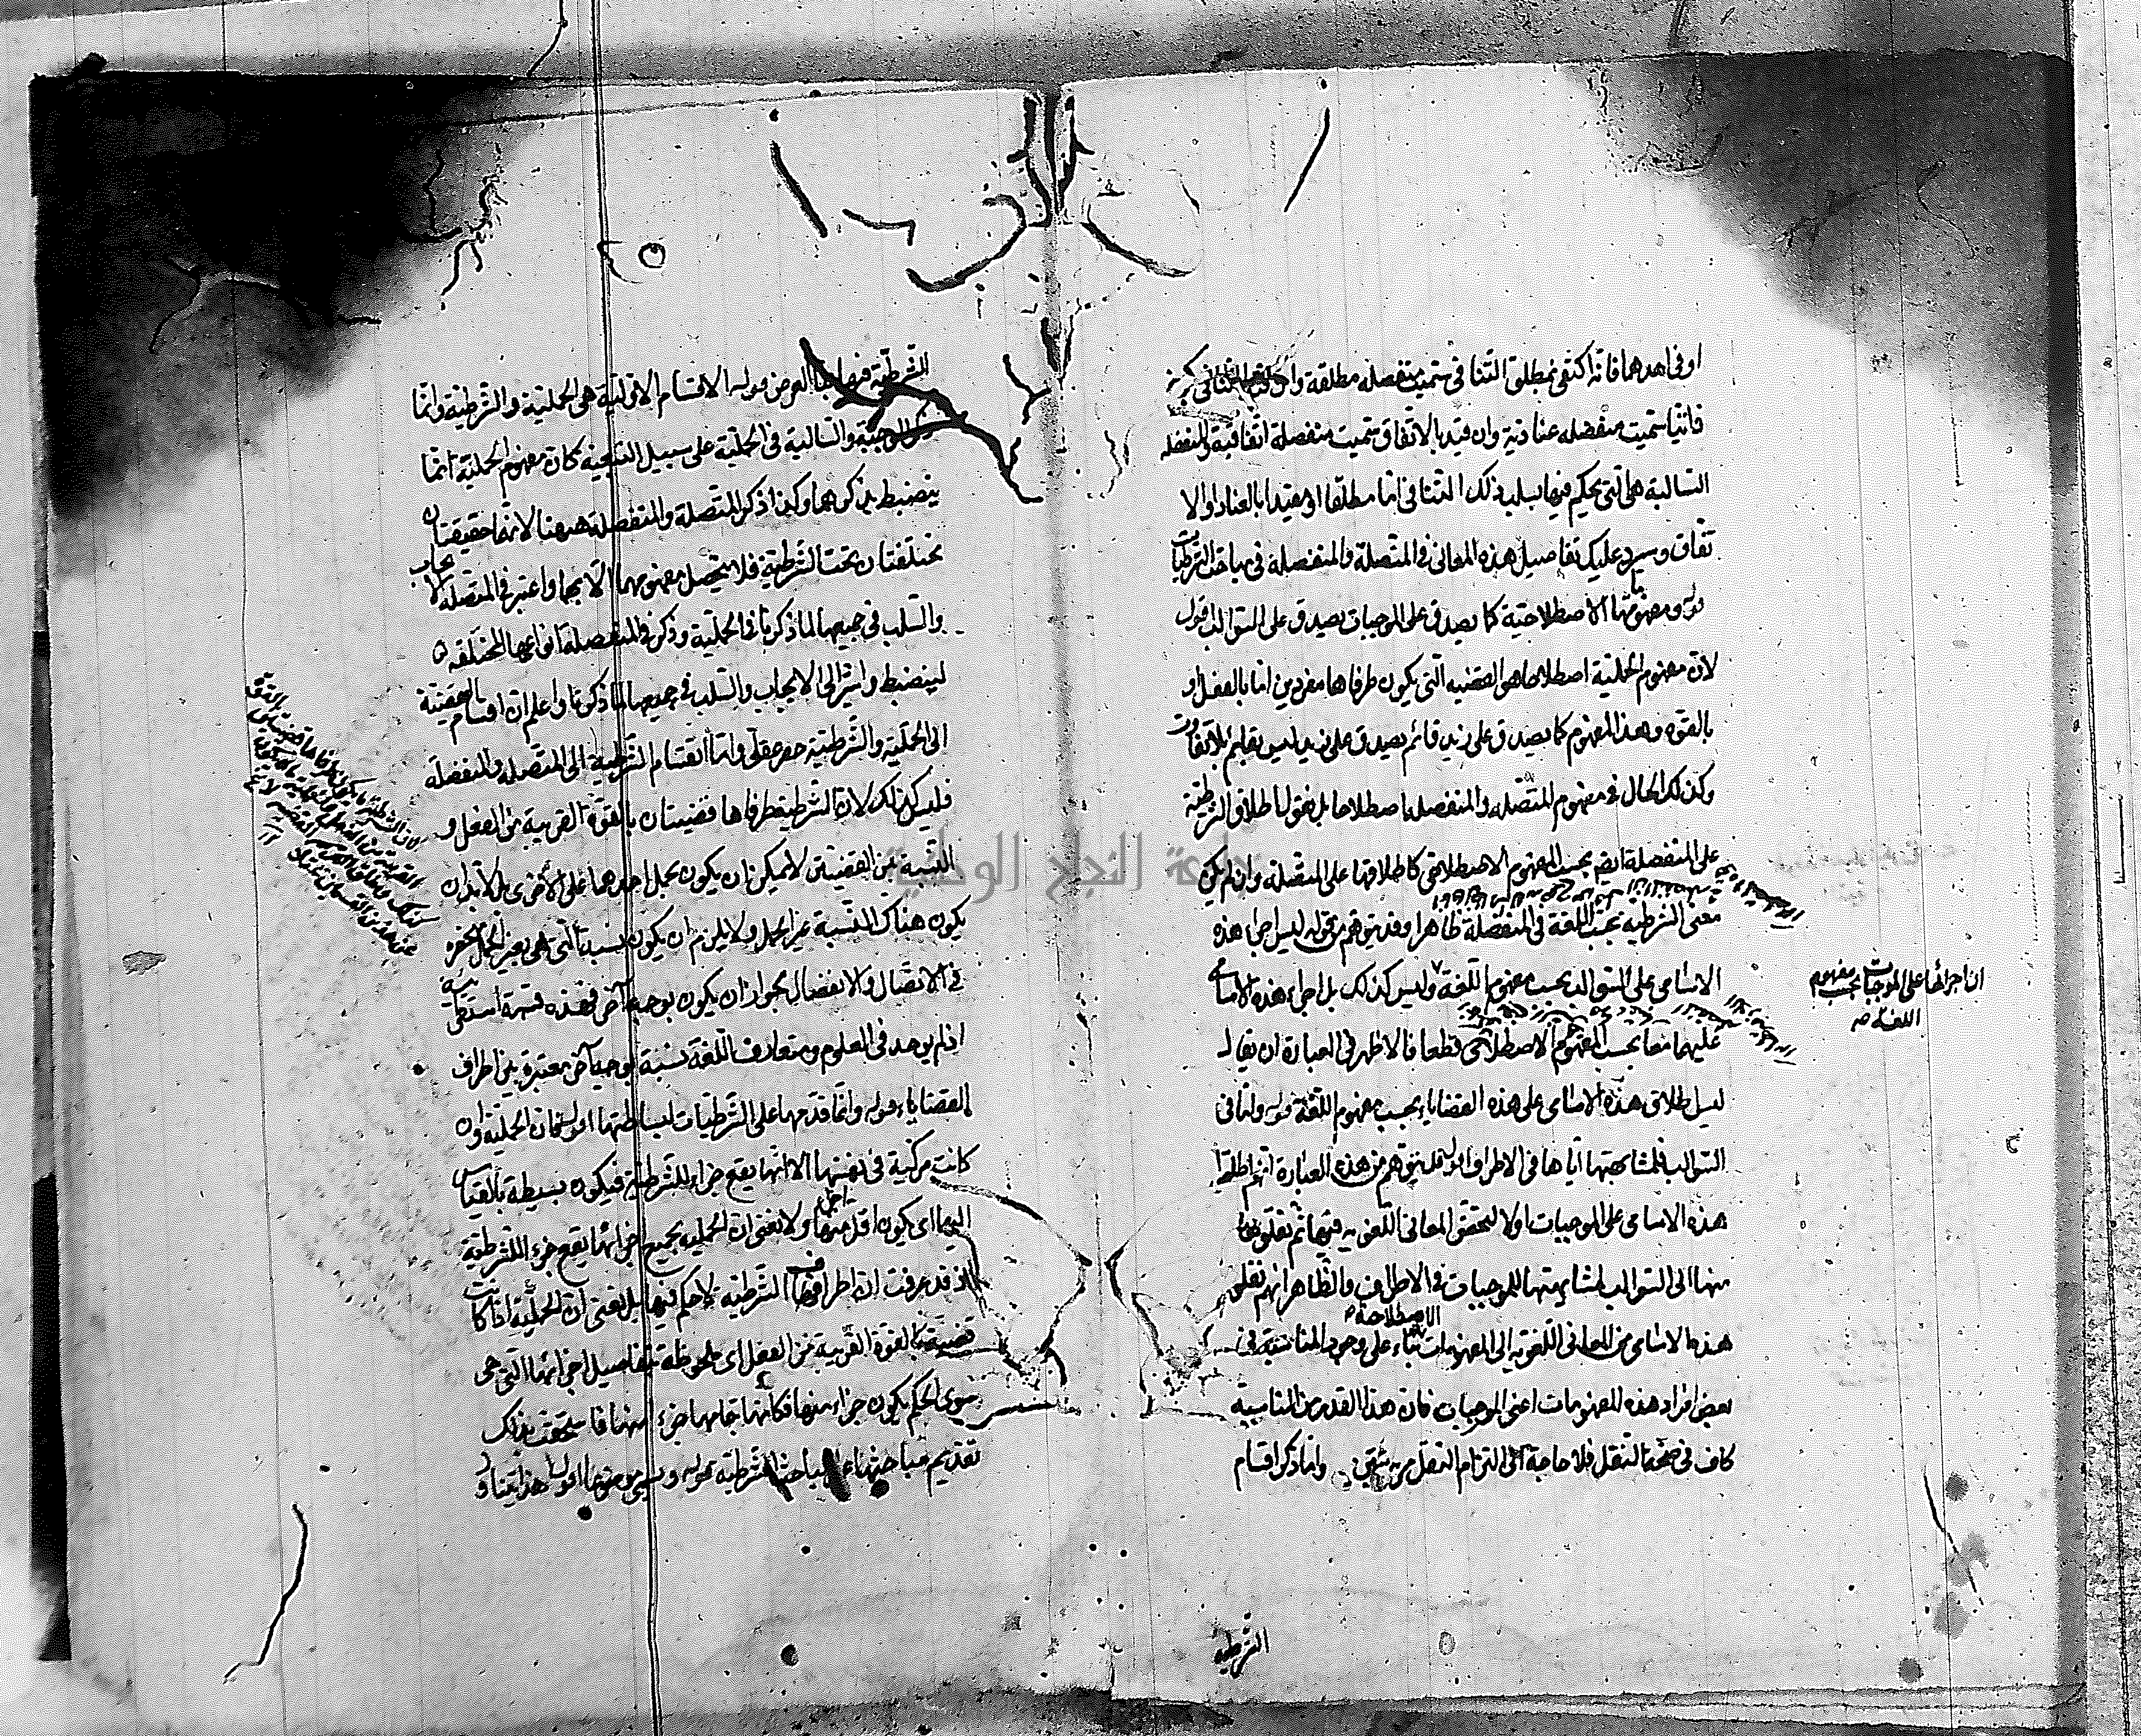 او في احدهما فانه اكتفى بمطلق التنافي سميت منفصلة مطلقة وان قيد التنافي بكونه
ذاتيا سميت منفصله عنادية وان قيد بالاتفاق سميت منفصلة اتفاقية والمنفصله
السالبة هي التي يحكم فيها بسلب ذلك التنافي اما مطلقا او مقيدا بالعناد او الا
تفاق وسيرد عليك تفاصيل هذه المعاني في المتصلة والمنفصلة في مباحث الشرطيات
قوله ومفهوماتها الاصطلاحية كما يصدق على الموجبات يصدق على السوالب اقول
لان مفهوم الحملية اصطلاحا هو القضيه التي يكون طرفاها مفردين اما بالفعل او
بالقوه وهذا المفهوم كما يصدق على زيد قائم يصدق على زيد ليس بقايم بلا تفاوت
وكذلك الحال في مفهوم المتصله والمنفصله اصطلاحا بل نقول اطلاق الشرطية
على المنفصلة ايضا بحسب المفهوم الاصطلاحي كاطلاقها على المتصله وان لم يكن
معنى الشرطيه بحسب اللغة في المنفصلة ظاهرا وقد يتوهم من قوله ليس اجراء هذه
الاسامي على السوالب بحسب مفهوم اللغة وليس كذلك بل اجراء هذه الاسامي
ان اجرائها على الموجبات بحسب مفهوم
اللغة صح
عليهما معا بحسب المفهوم الاصطلاحي قطعا فالاظهر في العبارة ان يقال
ليس اطلاق هذه الاسامي على هذه القضايا بحسب مفهوم اللغة قوله واما في
السوالب فلمشابهتها اياها في الاطراف اقول قد يتوهم من هذه العبارة انهم اطلقوا
هذه الاسامي على الموجبات اولا لتحقق المعاني اللغويه فيها ثم نقلوها
منها الى السوالب لمشابهتها للموجبات في الاطراف والظاهر انهم نقلوا
الاصطلاحية صح
هذه الاسامي من المعاني اللغويه الى المفهومات بناء على وجود المناسبة في
بعض افراد هذه المفهومات اعني الموجبات فان هذا القدر من المناسبة
كاف في صحة النقل فلا حاجة الى التزام النقل مرتين وانما ذكر اقسام
الشرطيه
الشرطية فيها العرض قوله الاقسام الاولية هي الحملية والشرطية وانما
الموجبة والسالبة في الحملية على سبيل التبعية كان مفهوم الحملية انما
ينضبط بذكرهما وكذا ذكر المتصلة والمنفصلة ههنا لانهما حقيقتان
مختلفتان تحت الشرطية فلا يتحصل مفهومهما الا بهما واعتبر في المتصله الايجاب
والسلب في جميعها لما ذكرنا في الحملية وذكر في المنفصلة انواعها المختلفه
لينضبط واشار الى الايجاب والسلب في جميعها لما ذكرنا واعلم ان اقسام القضية
الى الحملية والشرطية حصر عقلي واما انقسام الشرطية الى المتصله والمنفصله
فليس كذلك لان الشرطية طرفاها قضيتان بالقوة القريبة من الفعل و
النسبة بين القضيتين لا يمكن ان يكون بحمل احدهما على الاخرى بل لا بد ان
يكون هناك نسبة غير الحمل ولا يلزم ان يكون النسبة التي هي بغير الحمل منحصره
في الاتصال والانفصال لجواز ان يكون بوجه آخر فهذه قسمة استقرائية
اذ لم يوجد في العلوم ومتعارف اللغة نسبة بوجه آخر معتبرة بين اطراف
القضايا قوله وانما قدمها على الشرطيات لبساطتها اقول فان الحملية وان
كانت مركبة في نفسها الا انها يقع جزاء للشرطية فيكون بسيطة بالقياس
اليها اى يكون اقل اجزاء منها ولا نعني ان الحملية بجميع اجزائها يقع جزء للشرطية
اذ قد عرفت ان اطراف الشرطية لا حكم فيها بل نعني ان الحملية اذا كانت
قضية بالقوة القريبة من الفعل اى ملحوظة بتفاصيل اجزائها التي هي
سوى الحكم يكون جزاء منها فكانها بتمامها جزء منها فاستحقت بذلك
تقديم مباحثها على مباحث الشرطيه قوله ويسمى موضوعا اقول هذا يتناول